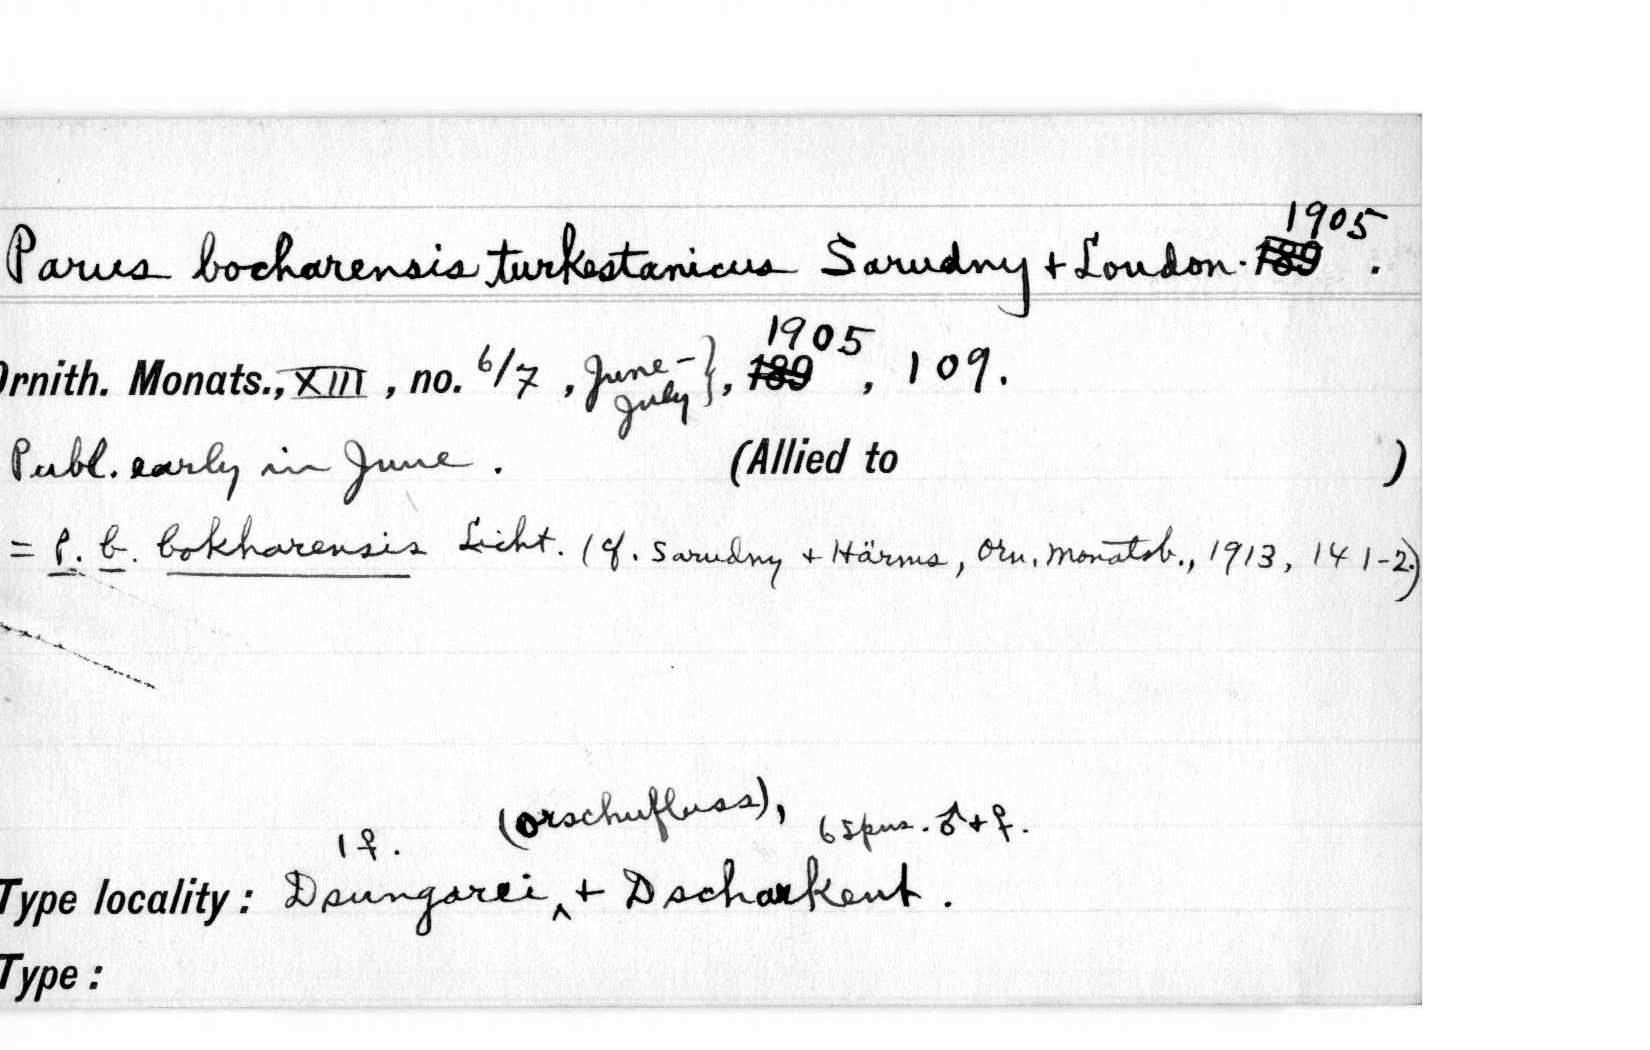 Parus bocharensis turkestanicus Sarudny + Loudon. 189 1905.
Ornith. Monats., XIII, no. 6/7, June-July}, 189 1905, 109.
Publ. early in June. (Allied to )
= P. b. bokharensis Licht. (cf. Sarudny + Härms, Orn. Monatsb., 1913, 141-2.)
1♀. (Orschufluss), 6 spms. ♂+♀.
Type locality: Dsungarei ^ + Dscharkent.
Type: